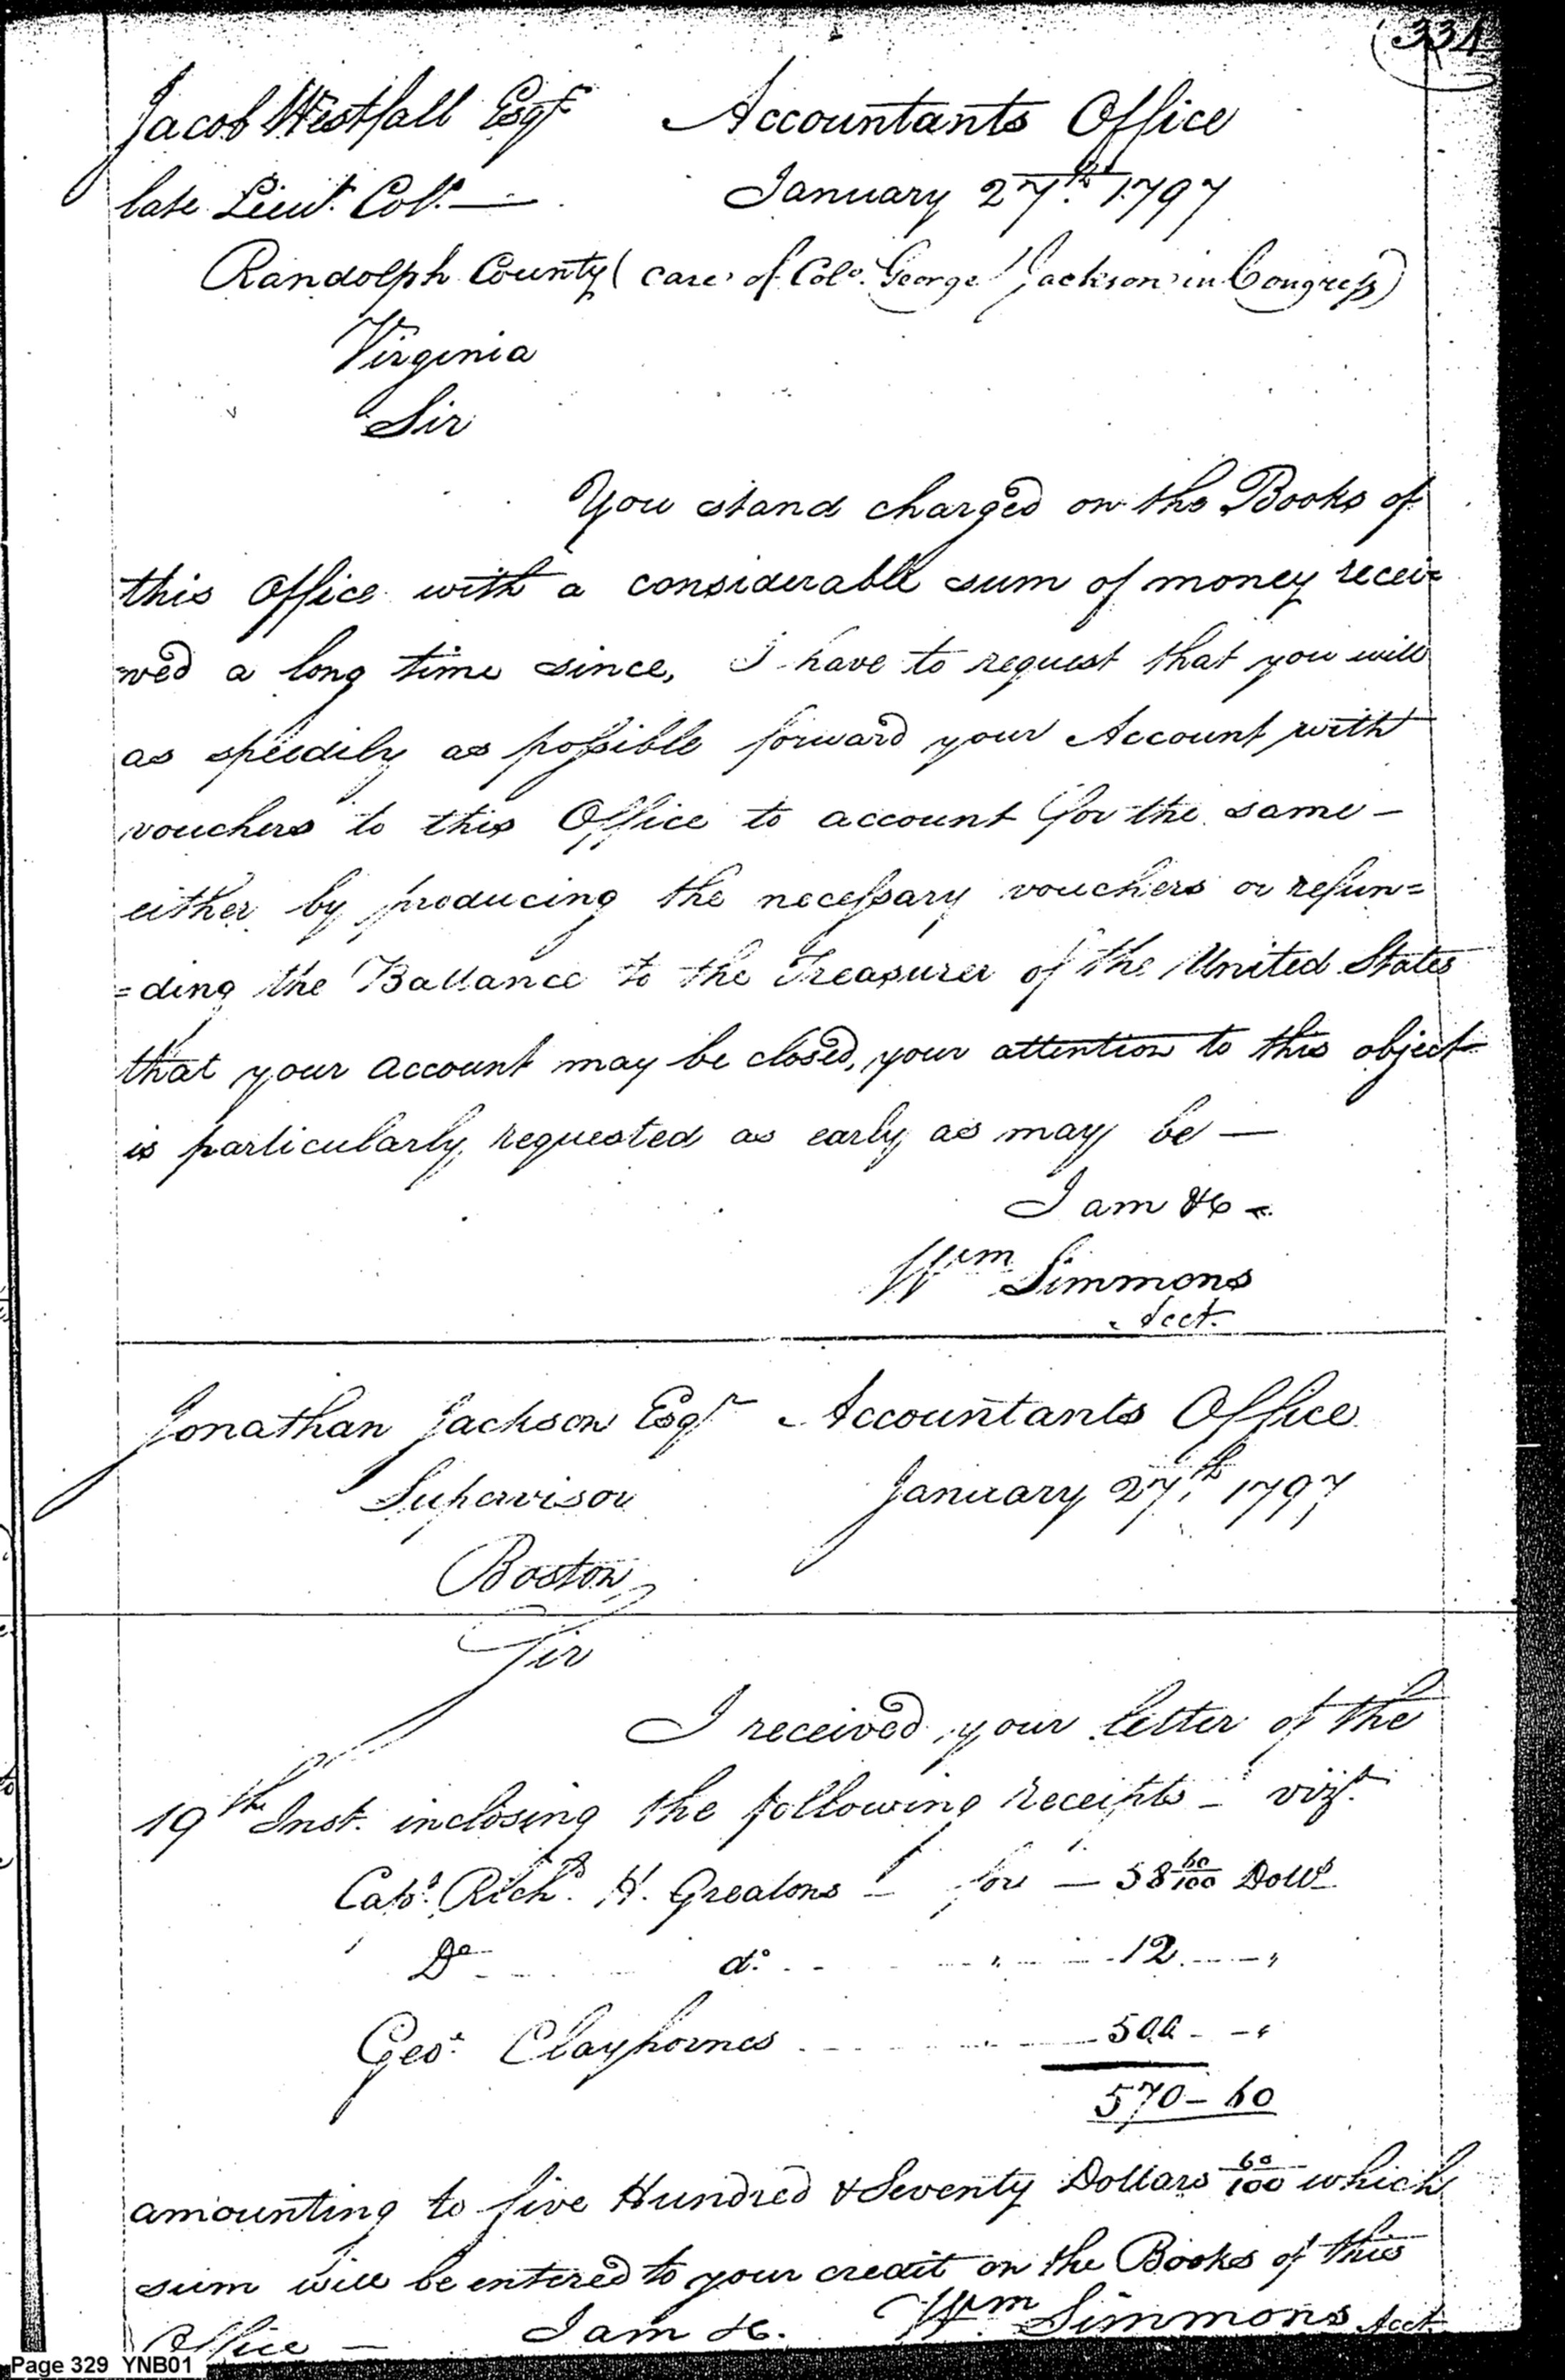 334
Jacob Westfall Esqr Accountants Office
late Lieut. Colo. — January 27th. 1797
Randolph County (care of Colo. George Jackson in Congress)
Virginia
Sir
You stand charged on the Books of
this Office with a considerable sum of money recei=
ved a long time since, I have to request that you will
as speedily as possible forward your Account with
vouchers to this Office to account for the same —
either by producing the necessary vouchers or refun=
=ding the Ballance to the Treasurer of the United States
that your account may be closed, your attention to this object
is particularly requested as early as may be —
I am &c
Wm Simmons
Acct.
Jonathan Jackson Esqr Accountants Office
Supervisor January 27th. 1797
Boston
Sir
I received your letter of the
19th Inst. inclosing the following receipts — vizt.
Capt. Richd. H. Greatons — for — 58 60/100 Dolls
Do do. " 12 "
Geo. Clayhornes 500 "
570 – 60
amounting to five Hundred & Seventy Dollars 60/100 which
sum will be entered to your credit on the Books of this
Office — I am &c. Wm Simmons Acct.
Page 329 YNB01